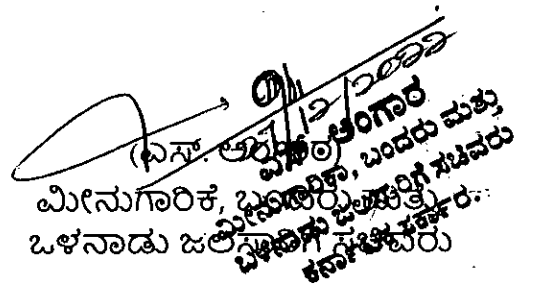 (ಎಸ್. ಅಂಗಾರ)
ಮೀನುಗಾರಿಕೆ, ಬಂದರು ಮತ್ತು
ಒಳನಾಡು ಜಲಸಾರಿಗೆ ಸಚಿವರು
ಎಸ್. ಅಂಗಾರ
ಮೀನುಗಾರಿಕಾ, ಬಂದರು ಮತ್ತು
ಒಳನಾಡು ಜಲಸಾರಿಗೆ ಸಚಿವರು
ಕರ್ನಾಟಕ ಸರ್ಕಾರ.